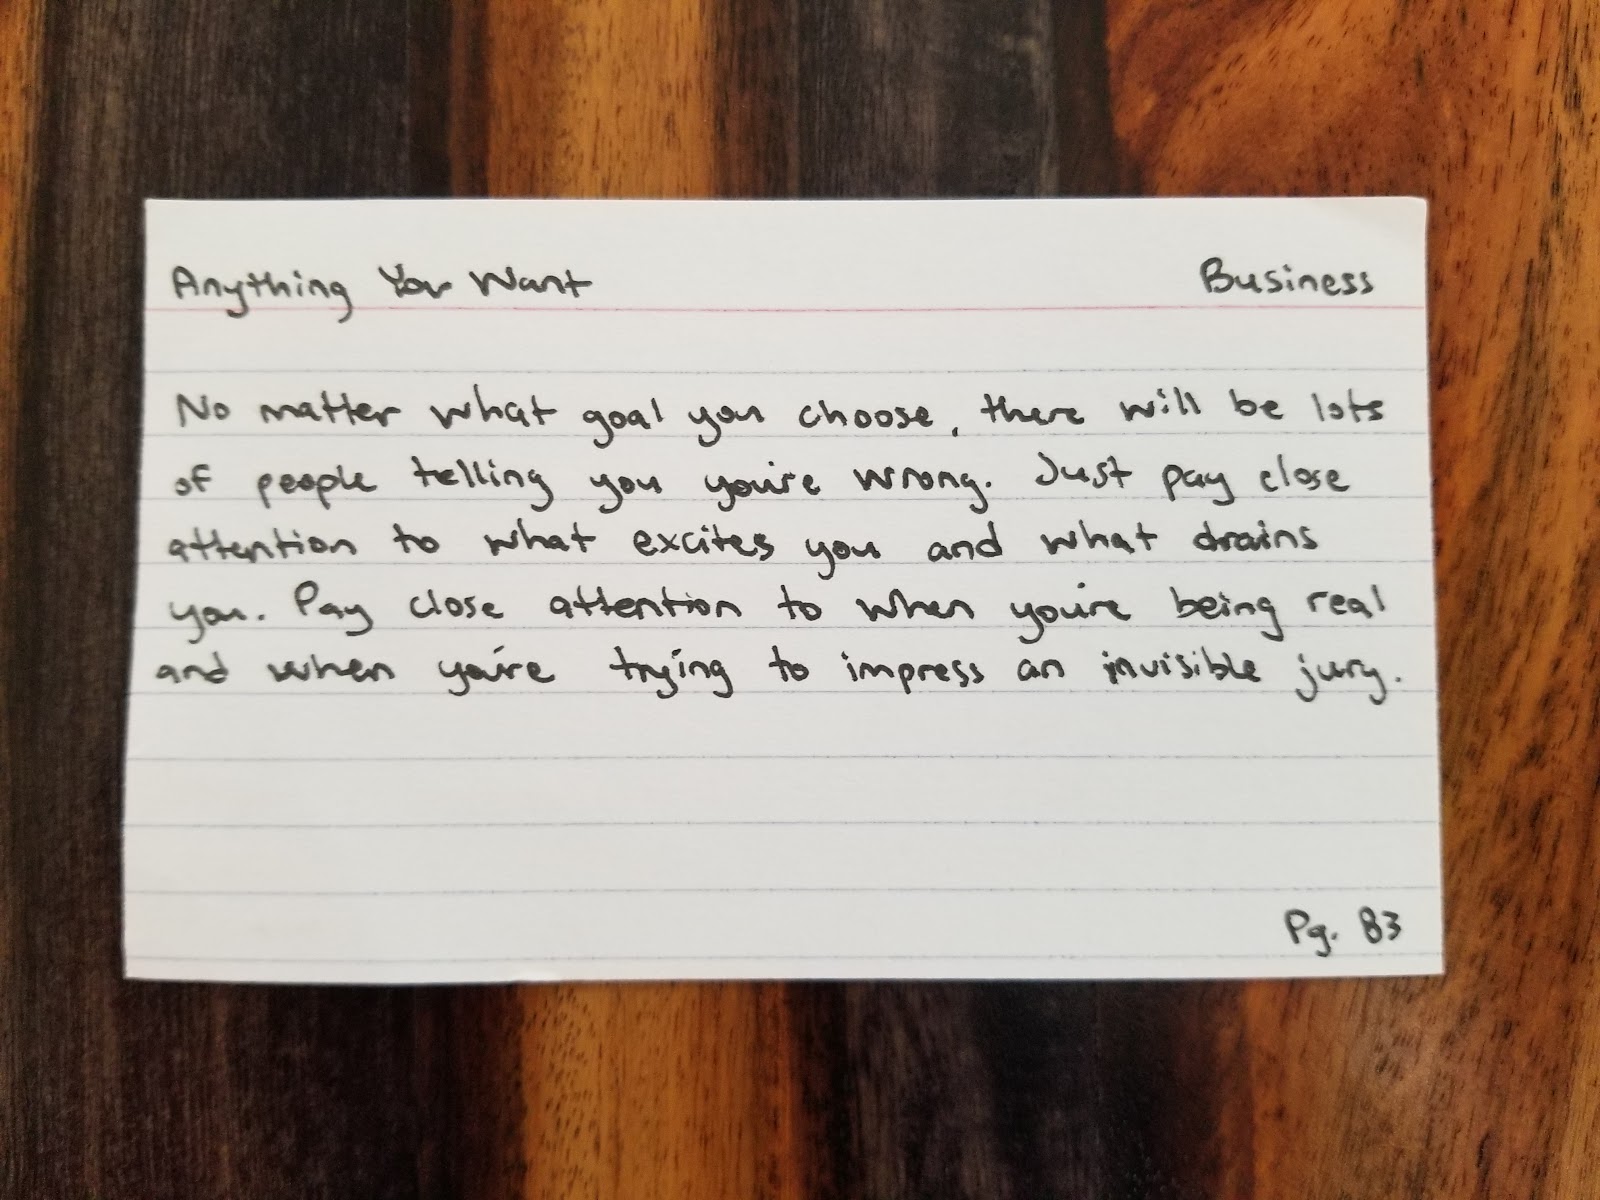 Anything You Want
Business
No matter what goal you choose, there will be lots
of people telling you you're wrong. Just pay close
attention to what excites you and what drains
you. Pay close attention to when you're being real
and when you're trying to impress an invisible jury.
Pg. 83